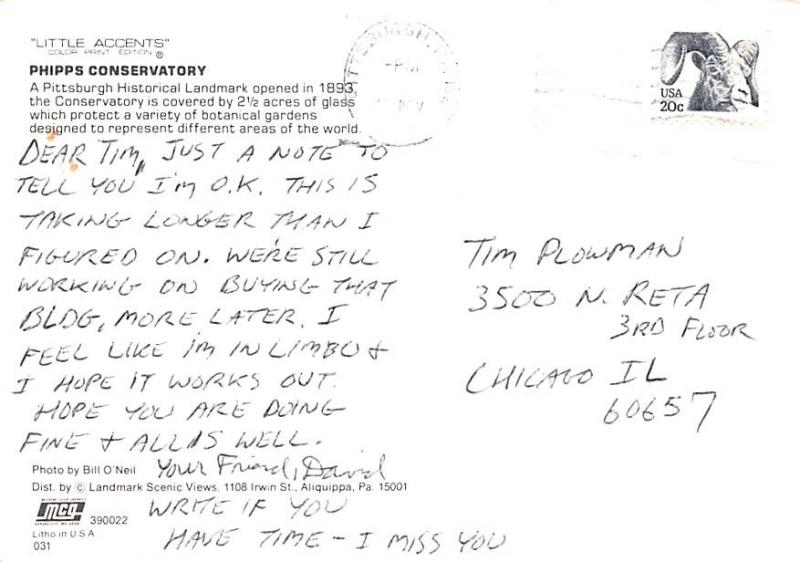 "LITTLE ACCENTS"
COLOR PRINT EDITION ®
PHIPPS CONSERVATORY
A Pittsburgh Historical Landmark opened in 1893,
the Conservatory is covered by 2½ acres of glass
which protect a variety of botanical gardens
designed to represent different areas of the world.
DEAR TIM, JUST A NOTE TO
TELL YOU I'm O.K. THIS IS
TAKING LONGER THAN I
FIGURED ON. WE'RE STILL
WORKING ON BUYING THAT
BLDG, MORE LATER. I
FEEL LIKE I'M IN LIMBO +
I HOPE IT WORKS OUT.
HOPE YOU ARE DOING
FINE + ALL IS WELL.
Your Friend, David
WRITE IF YOU
HAVE TIME - I MISS YOU
Photo by Bill O'Neil
Dist. by © Landmark Scenic Views, 1108 Irwin St., Aliquippa, Pa. 15001
mcg
390022
Litho in U.S.A
031
PITTSBURGH, PA
PM
USA
20c
TIM PLOWMAN
3500 N. RETA
3RD FLOOR
CHICAGO IL
60657